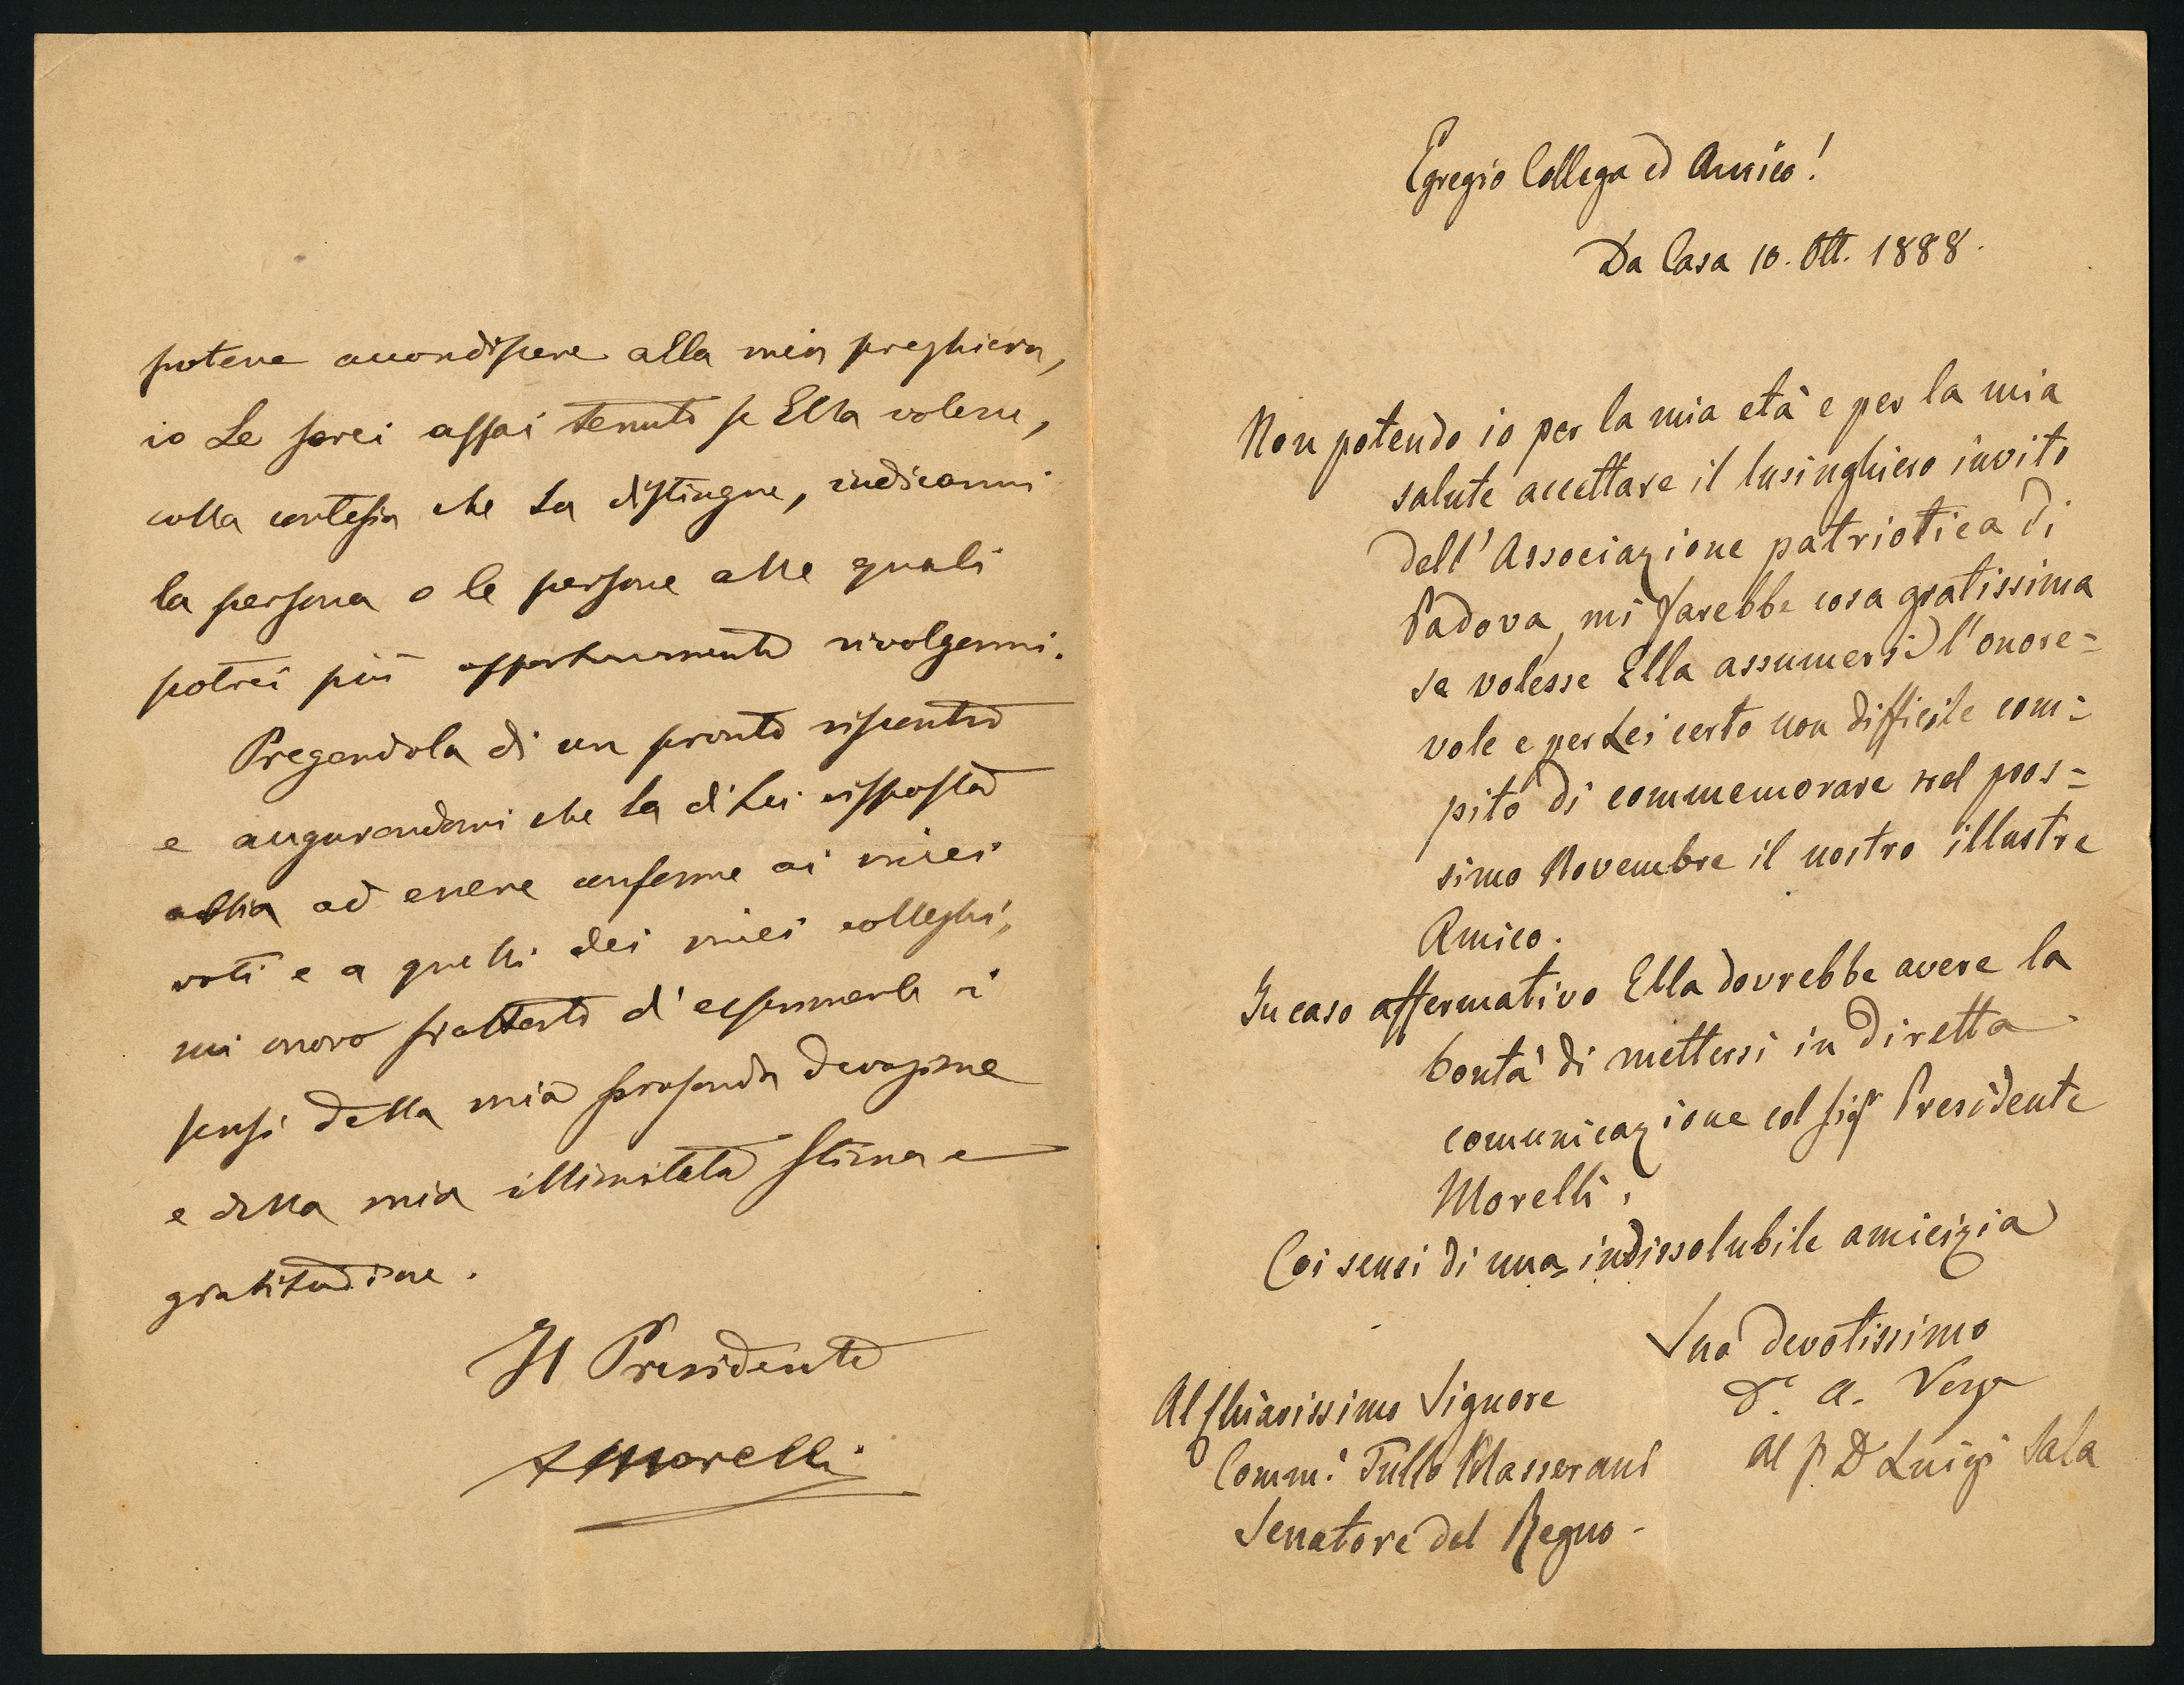 potere accondiscere alla mia preghiera,
io Le sarei assai tenuto se Ella volesse,
colla cortesia che La distingue, indicarmi
la persona o le persone alle quali
potrei più opportunamente rivolgermi.
Pregandola di un pronto riscontro
e augurandomi che la di Lei risposta
abbia ad essere conforme ai miei
voti e a quelli dei miei colleghi,
mi onoro frattanto d'esprimerle i
sensi della mia profonda devozione
e della mia illimitata stima e
gratitudine.
Il Presidente
AMorelli
Egregio Collega ed Amico!
Da Casa 10. Ott. 1888.
Non potendo io per la mia età e per la mia
salute accettare il lusinghiero invito
dell'Associazione patriotica di
Padova, mi farebbe cosa gratissima
se volesse Ella assumersi l'onore=
vole e per Lei certo non difficile com=
pito di commemorare nel pros=
simo Novembre il nostro illustre
Amico.
In caso affermativo Ella dovrebbe avere la
bontà di mettersi in diretta
comunicazione col Sigr Presidente
Morelli.
Coi sensi di una indissolubile amicizia
Suo devotissimo
Dr. A. Verga
Al Chiarissimo Signore
Comm: Tullo Masserani
Senatore del Regno -
al D Luigi Sala